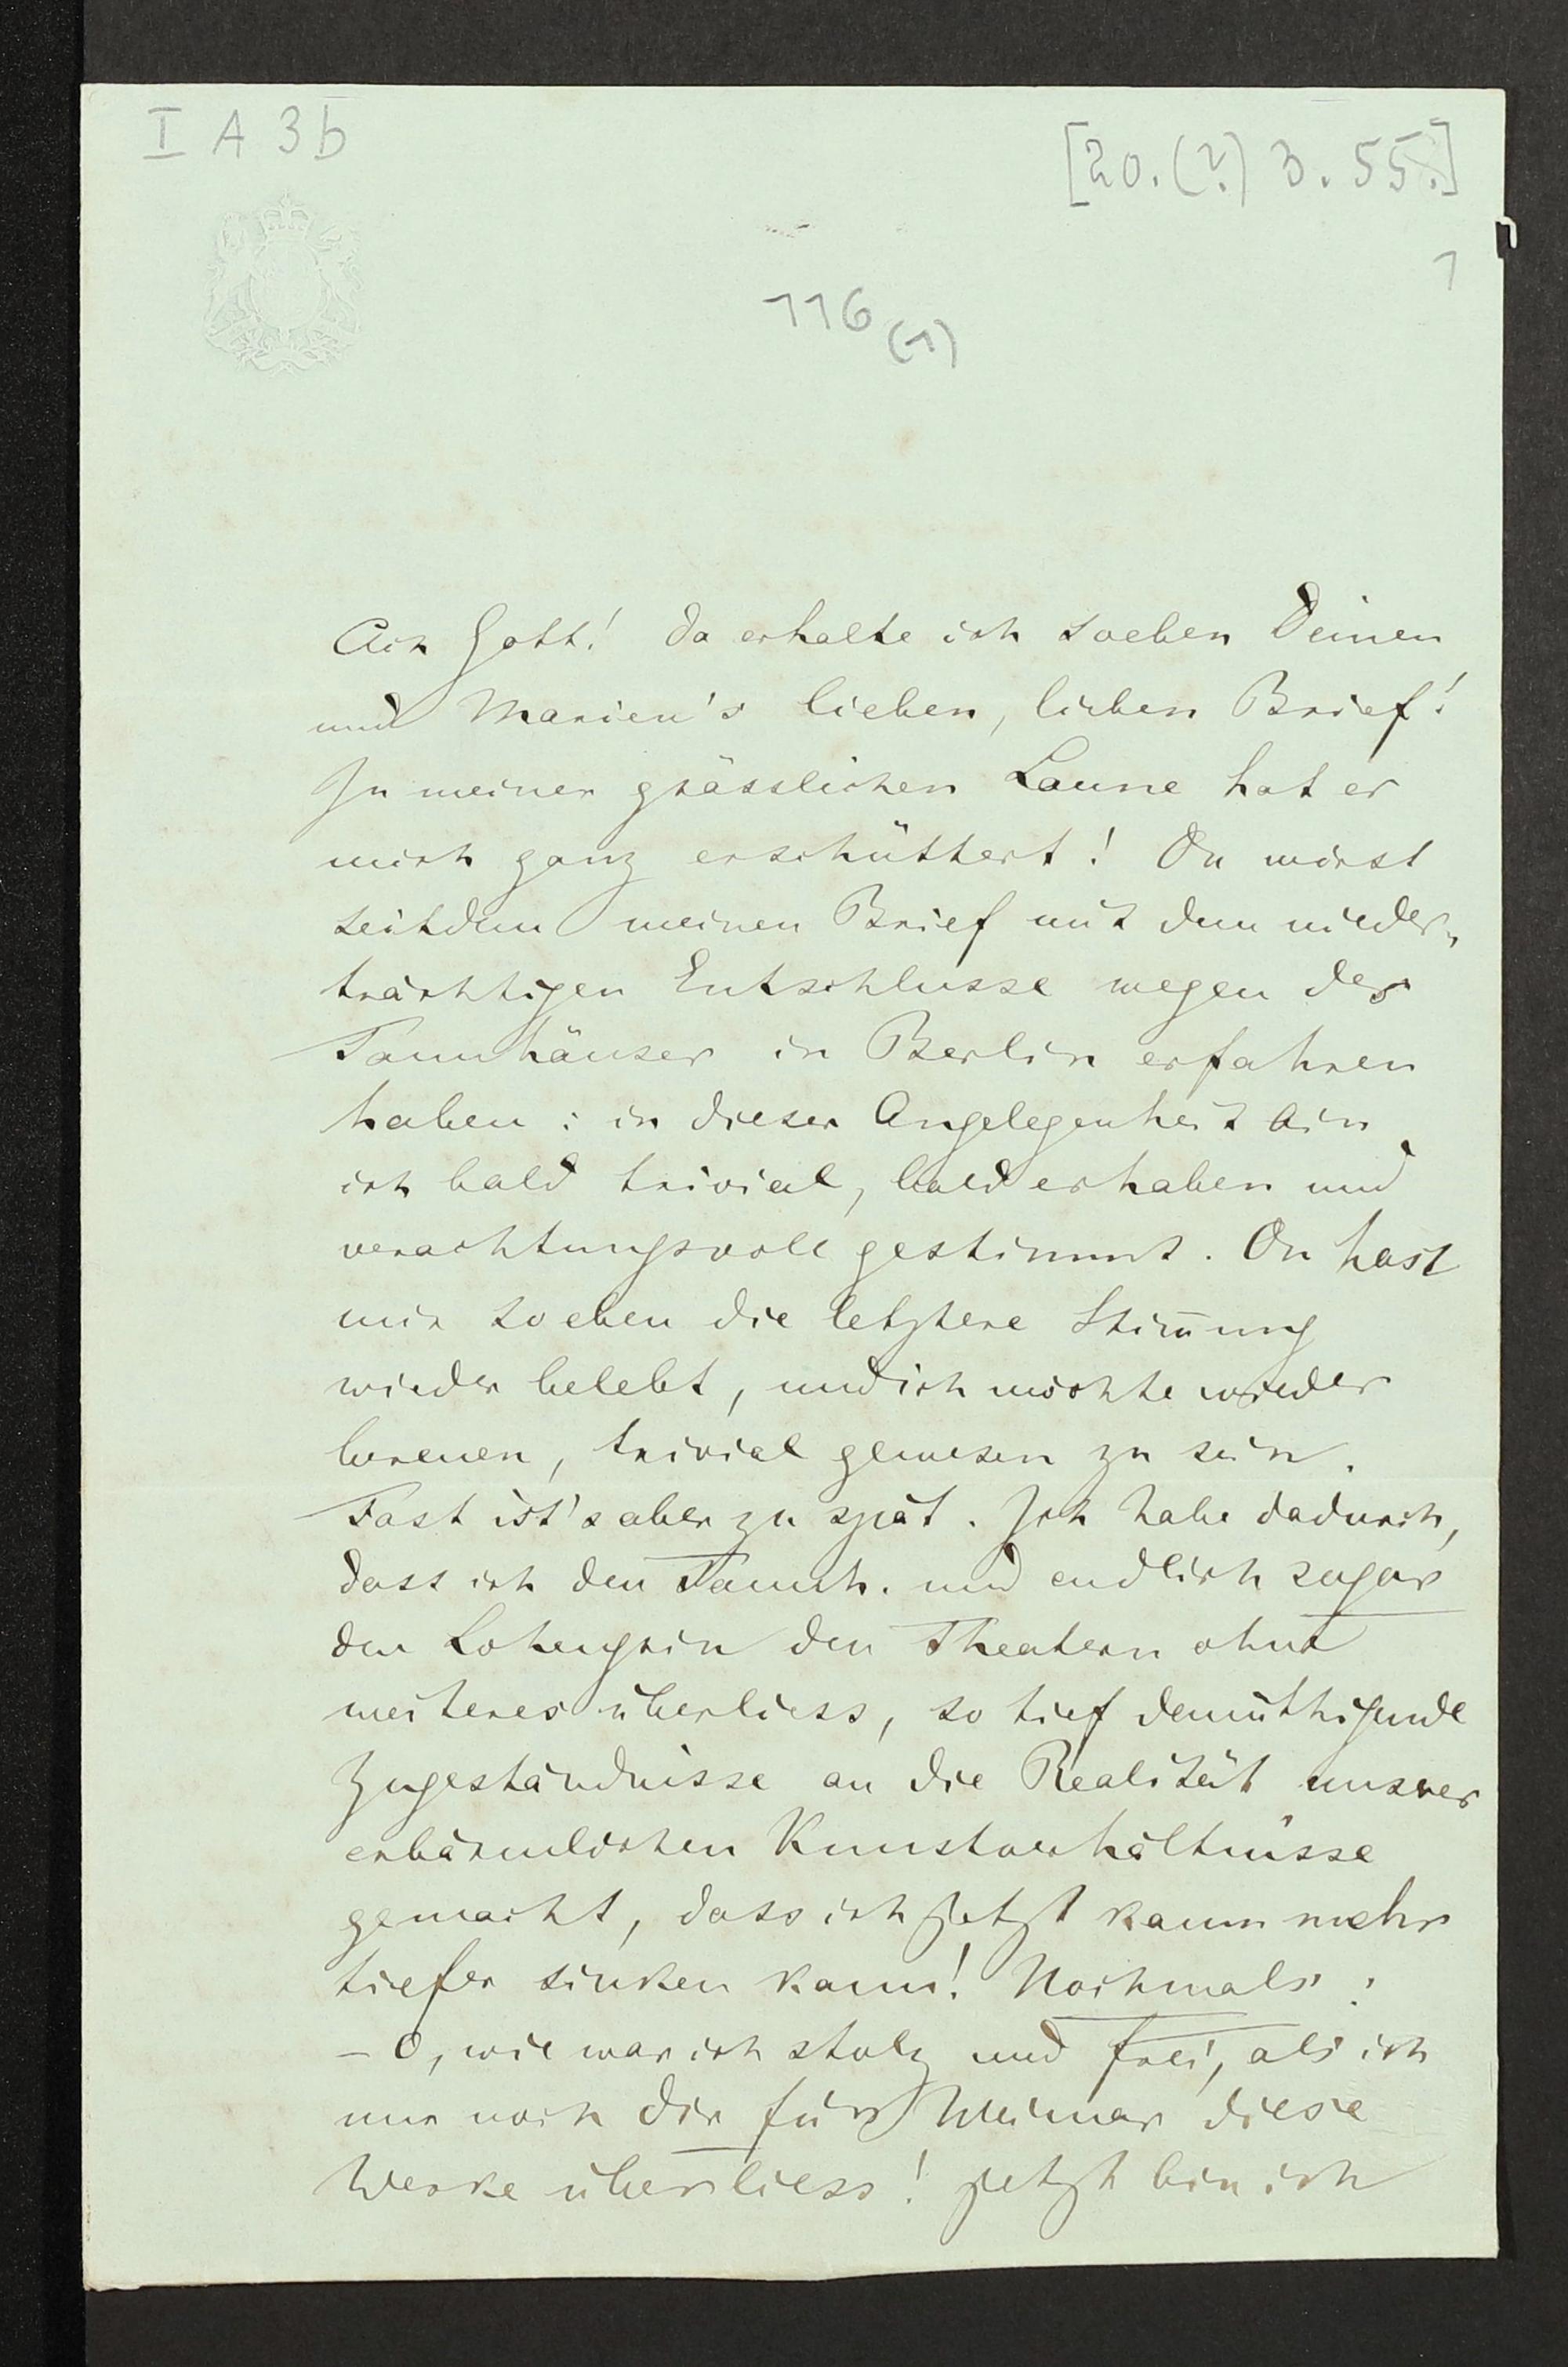 I A 3b
[20.(?) 3. 55.]
1
116 (1)
Ach Gott! da erhalte ich soeben Deinen
und Marien's lieben, lieben Brief!
In meiner grässlichen Laune hat er
mich ganz erschüttert! Du wirst
seitdem meinen Brief mit dem nieder-
trächtigen Entschlusse wegen des
Tannhäuser in Berlin erfahren
haben: in dieser Angelegenheit bin
ich bald trivial, bald erhaben und
verachtungsvoll gestimmt. Du hast
mir soeben die letztere Stim̄ung
wieder belebt, und ich möchte wieder
bereuen, trivial gewesen zu sein.
Fast ist's aber zu spät. Ich habe dadurch,
dass ich den Tannh. und endlich sogar
den Lohengrin den Theatern ohne
weiteres überliess, so tief demüthigende
Zugeständnisse an die Realität unsrer
erbärmlichen Kunstverhältnisse
gemacht, dass ich jetzt kaum mehr
tiefer sinken kann! Nochmals:
– O, wie war ich stolz und frei, als ich
nur noch Dir für Weimar diese
Werke überliess! jetzt bin ich